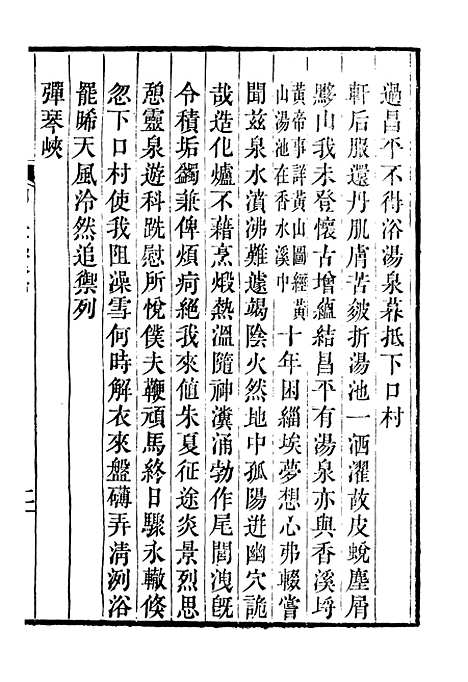 過昌平不得浴湯泉暮抵下口村
軒后服還丹肌膚苦皴折湯池一洒濯故皮蛻塵屑
黟山我未登懷古增蘊結昌平有湯泉亦與香溪埒
黃帝事詳黃山圖經黃
山湯池在香水溪中
十年困緇埃夢想心弗輟嘗
聞茲泉水濆沸難遽竭陰火然地中孤陽迸幽穴詭
哉造化爐不藉烹煅熱溫隨神瀵涌勃作尾閭洩旣
令積垢蠲兼俾煩疴絕我來値朱夏征途炎景烈思
憩靈泉遊科跣慰所悅僕夫鞭頑馬終日驟永轍倏
忽下口村使我阻澡雪何時解衣來盤礴弄清洌浴
罷晞天風泠然追禦列
彈琴峽
二